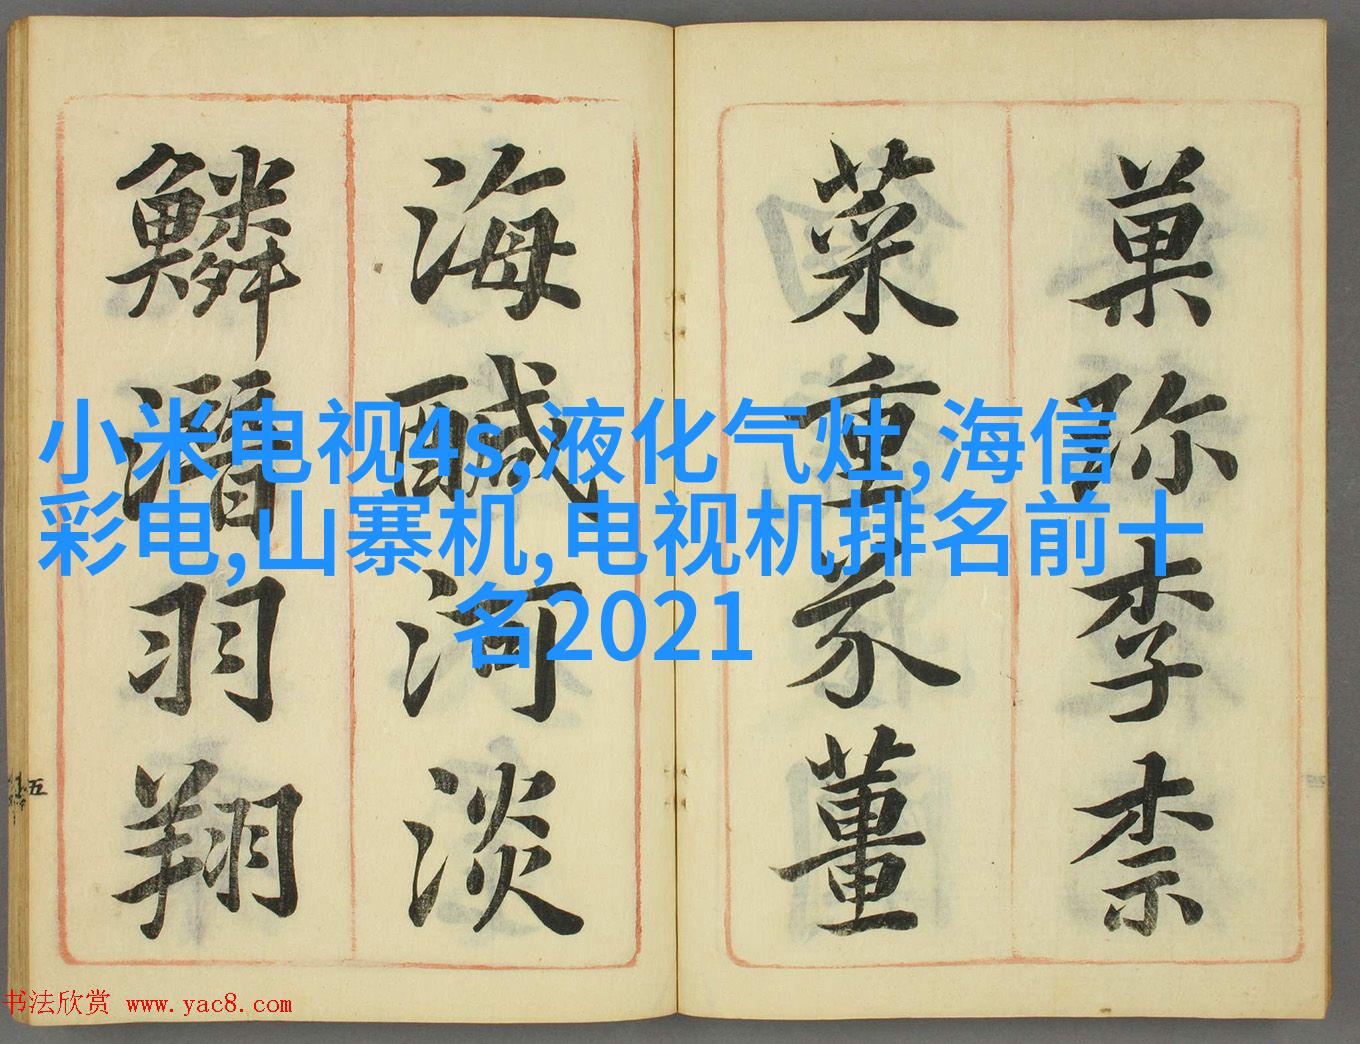 菓珎李柰
菜重芥薑
海鹹河淡
鱗潛羽翔
小米电视4s,液化气灶,海信
彩电,山寨机,电视机排名前十
名2021
五
书法欣赏 www.yac8.com